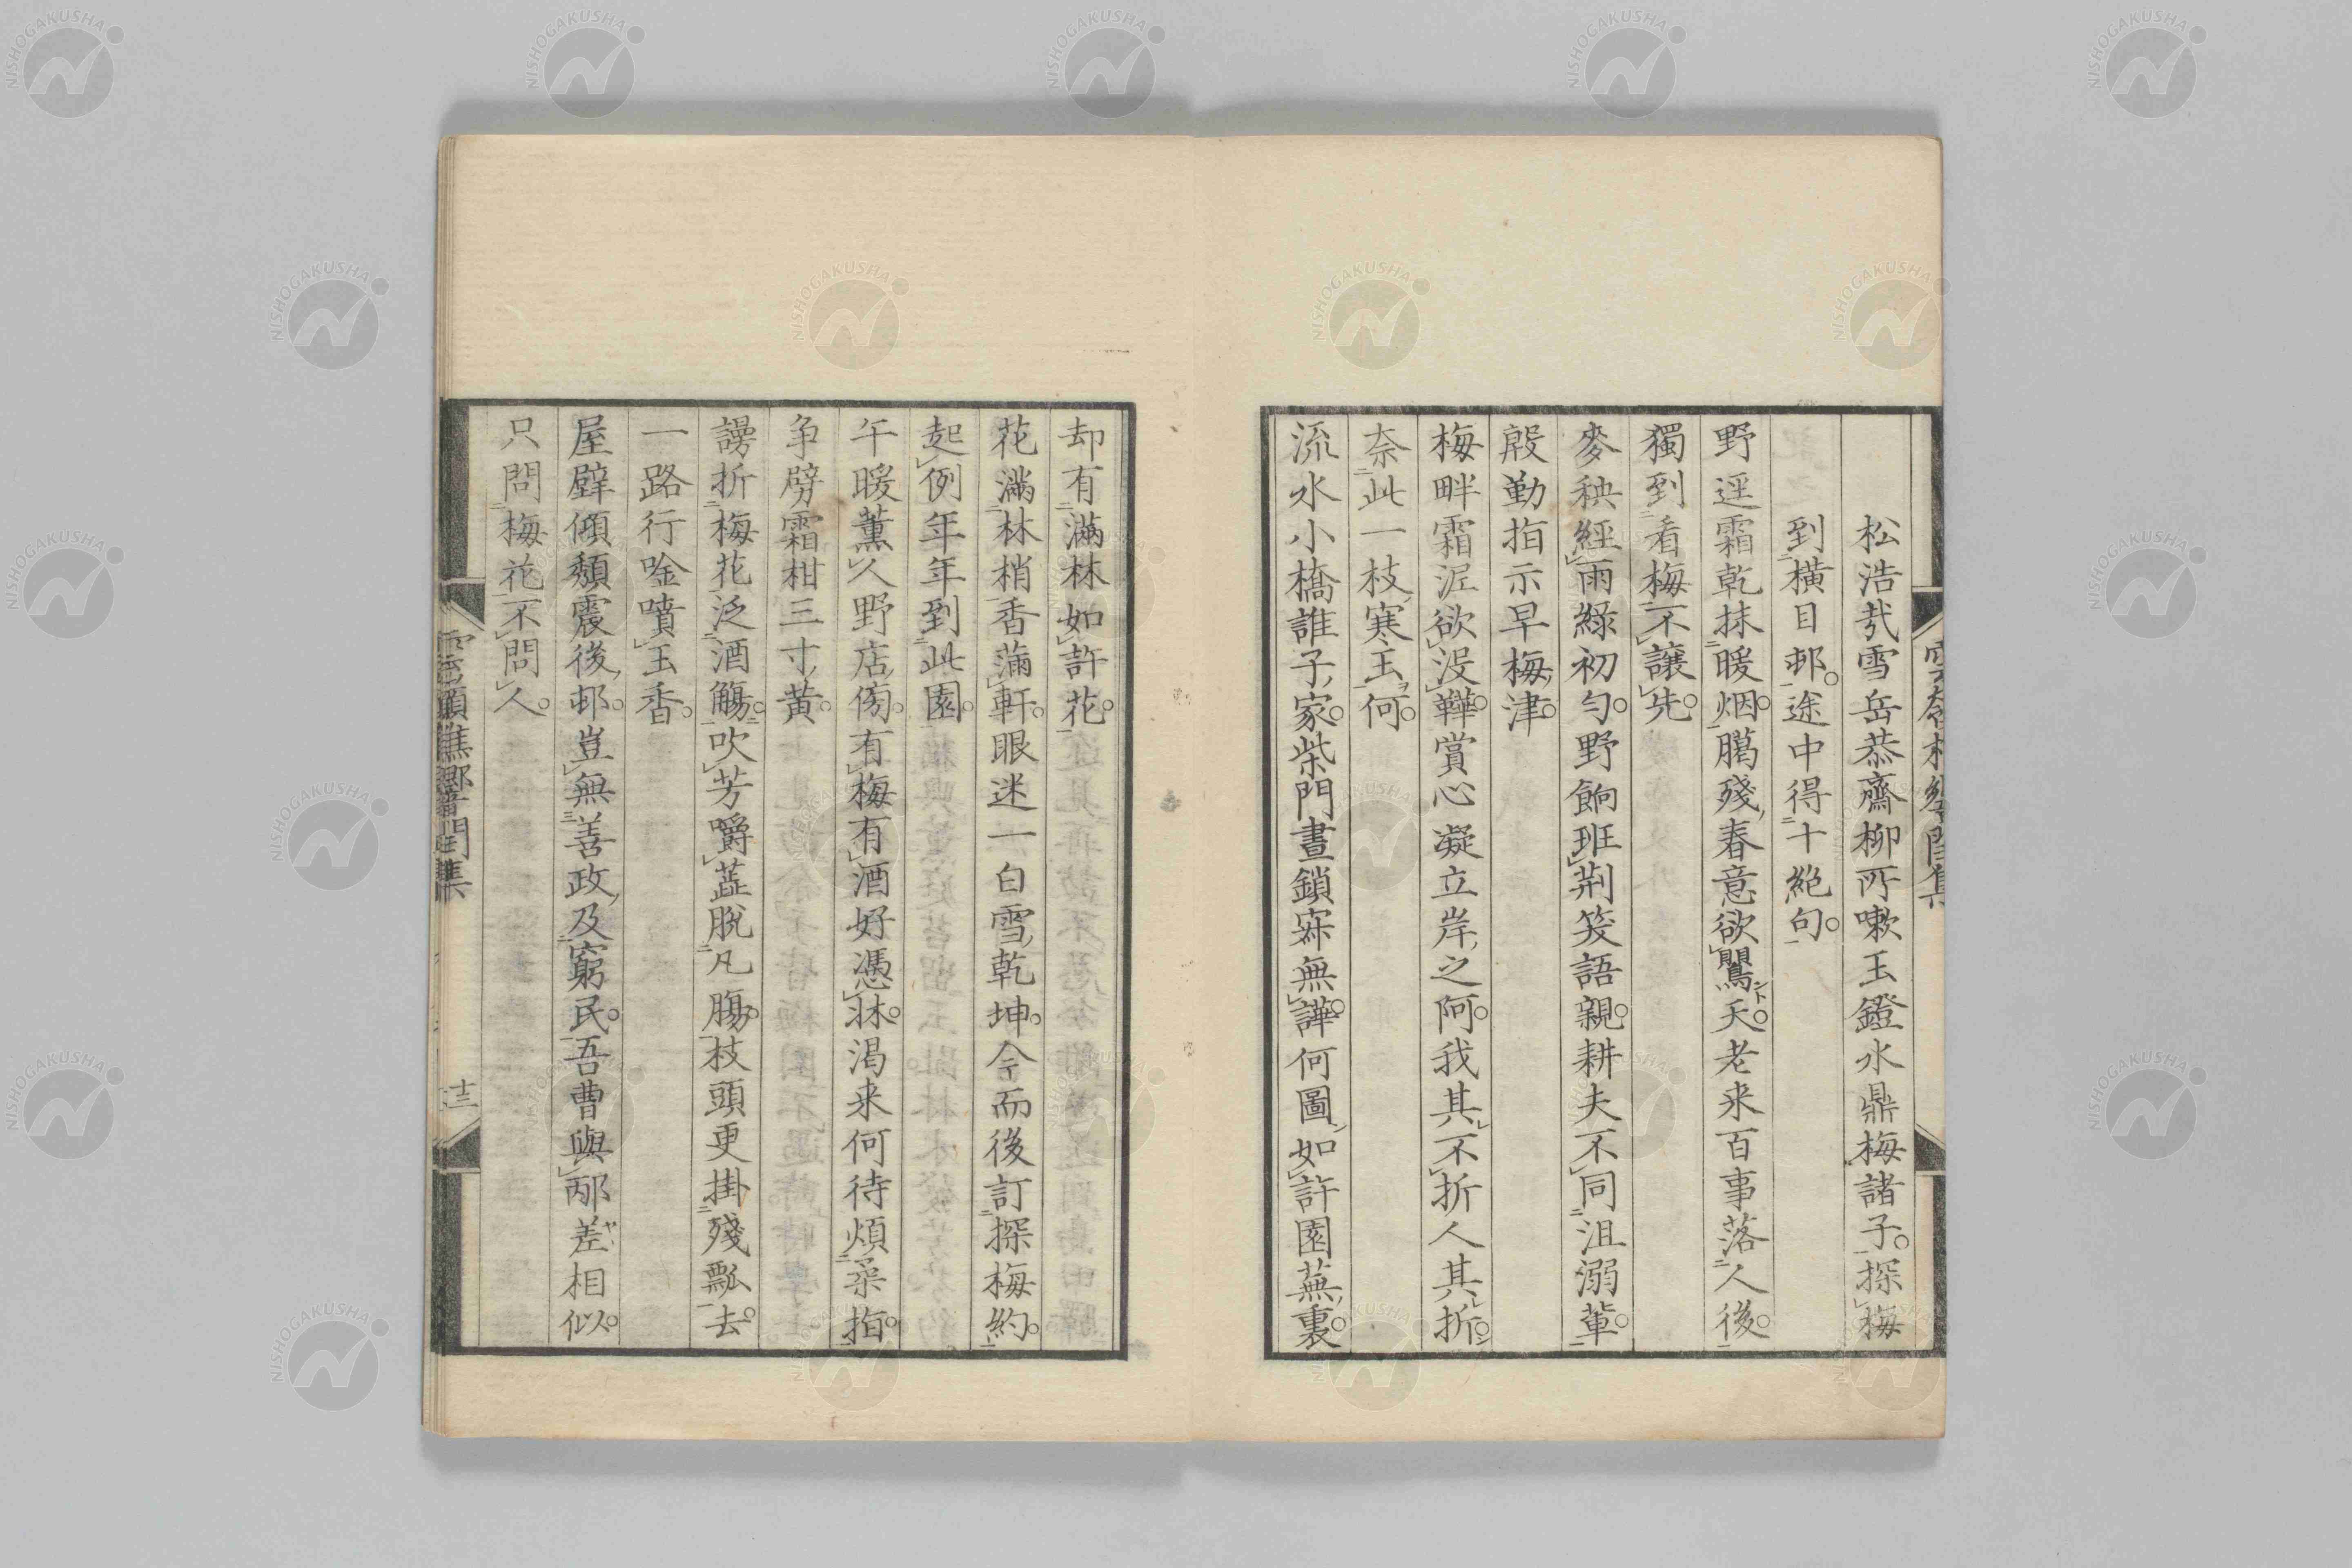 松浩哉雪岳恭齋柳所嗽玉鐙水鼎梅諸子探梅
到橫目邨途中得十絶句
野逕霜乾抹暖烟臈殘春意欲鷖天老来百事落人後
獨到看梅不讓先
麥秧經雨緑初勻野餉班荆笑語親耕夫不同沮溺輩
殷勤指示早梅津
梅畔霜泥欲没鞾賞心凝立岸之阿我其不折人其折
奈此一枝寒玉何
流水小橋誰子家柴門晝鎖寂無譁何圖如許園蕪裏
却有滿林如許花
花滿林梢香滿軒眼迷一白雪乾坤今而後訂探梅約
起例年年到此園
午暖薰人野店傍有梅有酒好憑牀渇来何待煩柔指
争擘霜柑三寸黄
謾折梅花泛酒觴吹芳嚼蘂脱凡膓枝頭更掛殘瓢去
一路行唫噴玉香
屋壁傾頽震後邨豈無善政及窮民吾曹與邴差相似
只問梅花不問人
十三